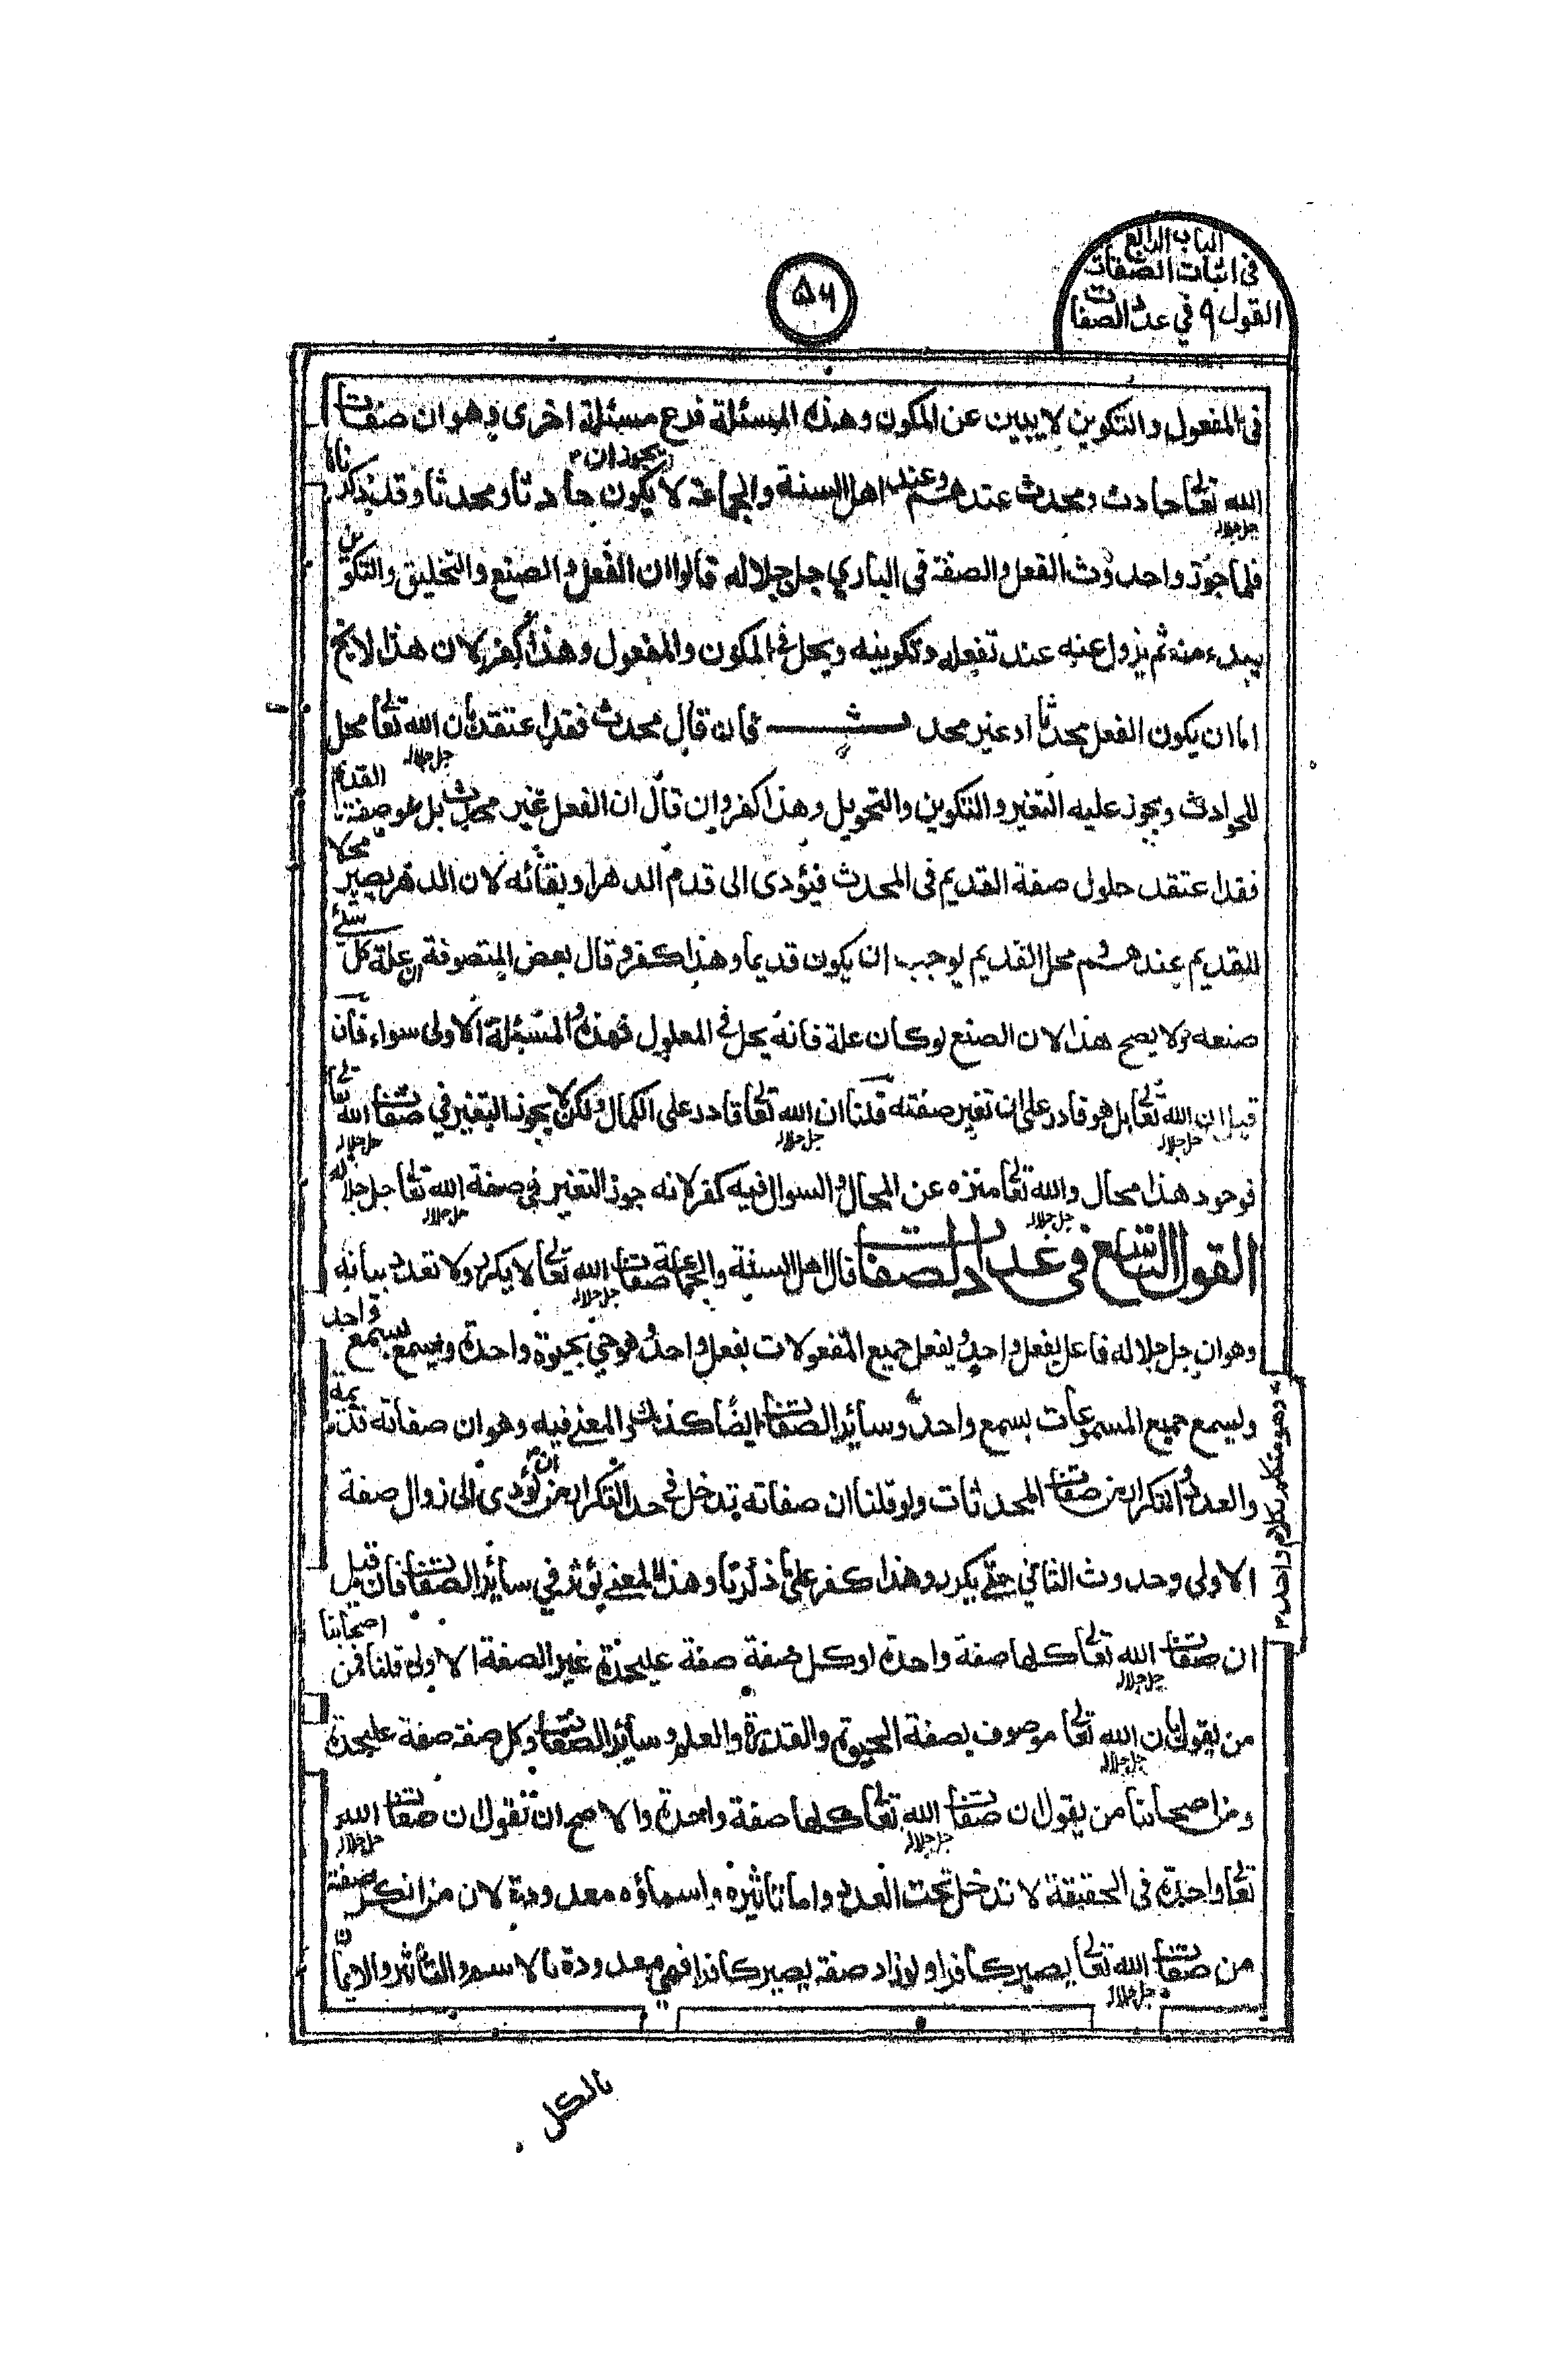 الباب الرابع
في اثبات الصفات
القول ٩ في عدد الصفات
٥٦
في المفعول والتكوين لا يبين عن المكون وهذه المسئلة فرع مسئلة اخرى وهو ان صفات
الله تعالى جل جلاله حادث ومحدث عندهم وعند اهل السنة والجماعة لا يجوز ان يكون حادثا ومحدثا وقد ذكرناها
فلما جوز واحدوث الفعل والصفة في الباري جل جلاله قالوا ان الفعل والصنع والتخليق والتكوين
يبدء منه ثم يزول عنه عند تفعله وتكوينه ويحل في المكون والمفعول وهذا كفر لان هذا لا يخ
اما ان يكون الفعل محدثا او غير محدث فان قال محدث فقد اعتقد بأن الله تعالى جل جلاله محل
للحوادث ويجوز عليه التغير والتكوين والتحويل وهذا كفر وان قال ان الفعل غير محدث بل هو صفة القديم
فقد اعتقد حلول صفة القديم في المحدث فيؤدى الى قدم الدهر او بقائه لان الدهر يصير محلا
للقديم عندهم ومحل القديم يوجب ان يكون قديما وهذا كفر وقال بعض المتصوفة ان علة كل شئ
صنعه ولا يصح هذا لان الصنع لو كان علة فانه يحل في المعلول فهذه والمسئلة الاولى سواء فان
قيل ان الله تعالى جل جلاله بل هو قادر على ان تغير صفته قلنا ان الله تعالى جل جلاله قادر على الكمال ولكن لا يجوز التغير في صفات الله تعالى جل جلاله
فوجود هذا محال والله تعالى جل جلاله منزه عن المحال والسوال فيه كفر لانه جوز التغير في صفة الله تعالى جل جلاله
القول التاسع في عدد الصفات قال اهل السنة والجماعة صفات الله تعالى جل جلاله لا يكرر ولا تعدد بيانه
وهو ان جل جلاله فاعل بفعل واحد ويفعل جميع المفعولات بفعل واحد وهو حي بحيوة واحدة ويسمع بسمع واحد
وليسمع جميع المسموعات بسمع واحد وسائر الصفات ايضا كذلك والمعنى فيه وهو ان صفاته قديمة
وهو متكلم بكلام واحد
والعدد والتكرار من صفات المحدثات ولو قلنا ان صفاته تدخل في حد التكرار من ان يؤدى الى زوال صفة
الاولى وحدوث الثاني حتى يكرر وهذا كفر على ما ذكرنا وهذا المعنى يؤثر في سائر الصفات فان قيل
ان صفات الله تعالى جل جلاله كلها صفة واحدة او كل صفة صفة عليحدة غير الصفة الاولى قلنا فمن اصحابنا
من يقول بان الله تعالى جل جلاله موصوف بصفة الحيوة والقدرة والعلم وسائر الصفات وكل صفة صفة عليحدة
ومن اصحابنا من يقول ان صفات الله تعالى جل جلاله كلها صفة واحدة والاصح ان نقول ان صفات الله جل جلاله
تعالى واحدة في الحقيقة لا تدخل تحت العدد واما تاثيره واسماؤه معدودة لان من انكر صفة
من صفات الله تعالى جل جلاله يصير كافرا ولو زاد صفة يصير كافرا فهي معدودة بالاسم والتأثير والايمان
بالكل